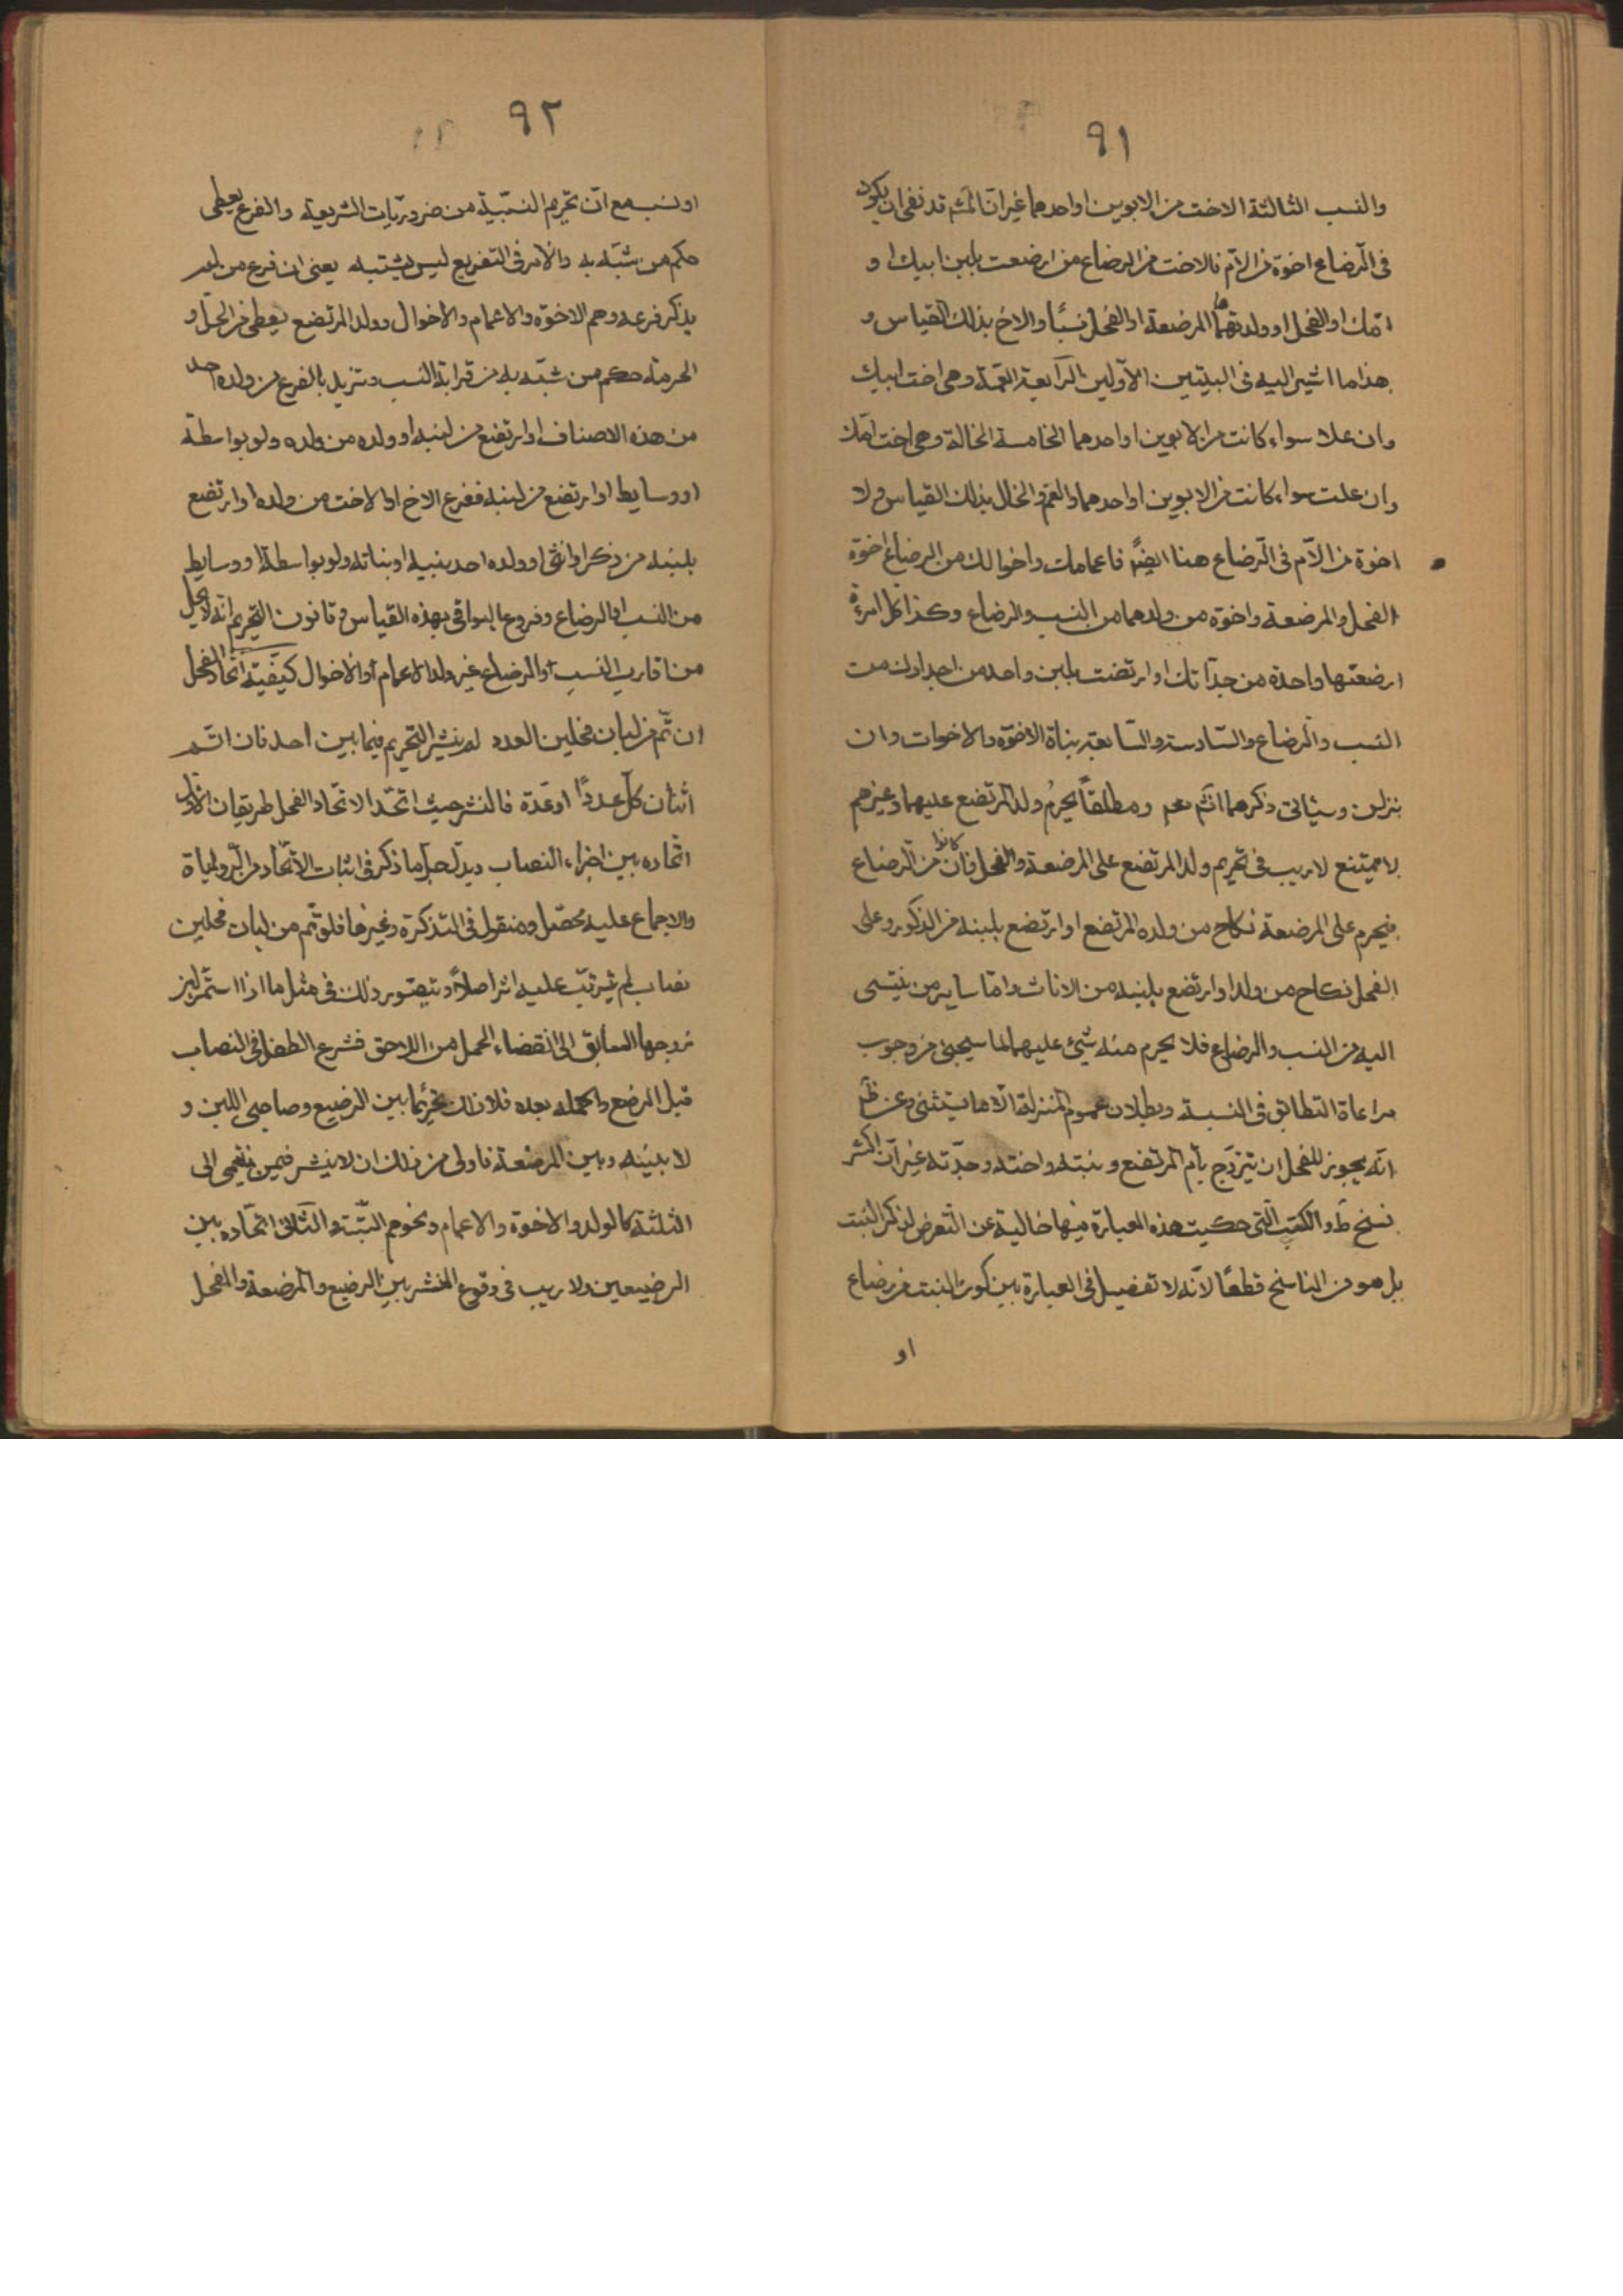 ٩١
والنسب الثالثة الاخت من الابوين او احدهما غير ان المثم قد نفى ان يكون
فى الرضاع اخوة من الام فالاخت من الرضاع من ارضعت بلبن ابيك او
امك او الفحل او ولدتهما المرضعة او الفحل نسبًا والاخ بذلك القياس و
هذا ما اشير اليه فى البيتين الاولين الرابعة العمة وهى اخت ابيك
وان علا سواء كانت من الابوين او احدهما الخامسة الخالة وهى اخت امك
وان علت سواء كانت من الابوين او احدهما والعم والخال بذلك القياس ولا
اخوة من الام فى الرضاع هنا ايضًا فاعمامك واخوالك من الرضاع اخوة
الفحل والمرضعة واخوة من ولدهما من النسب والرضاع وكذا كل امرءة
ارضعتها واحدة من جداتك او ارتضعت بلبن واحد من اجدادك من
النسب والرضاع والسادسة والسابعة بناة الاخوة والاخوات وان
نزلن وسياتى ذكرهما انثم ومطلقًا يحرم ولد المرتضع عليهما وغيرهم
لا يمتنع لا ريب فى تحريم ولد المرتضع على المرضعة والفحل وان كانوا من الرضاع
فيحرم على المرضعة نكاح من ولده المرتضع او ارتضع بلبنه من الذكور وعلى
الفحل نكاح من ولد او ارتضع بلبنه من الاناث واما ساير من ينتمى
اليه من النسب والرضاع فلا يحرم منه شىء عليهما لما سيجئ من وجوب
مراعاة التطابق فى النسبة وبطلان عموم المنزلة الا ما يستثنى وعن ط
انه يجوز للفحل ان يتزوج بام المرتضع وبنته واخته وجدته غير ان اكثر
نسخ ط والكتب التى حكيت هذه العبارة فيها خالية عن التعرض لذكر البنت
بل هو من الناسخ قطعًا لانه لا تفصيل فى العبارة بين كون البنت من رضاع
او
٩٢
او نسب مع ان تحريم النسبية من ضروريات الشريعة والفرع يعطى
حكم من شبه به والامر فى التفريع ليس يشتبه يعنى ان فرع من لم
يذكر فرعه وهم الاخوة والاعمام والاخوال وولد المرتضع يعطى من الحل و
الحرمة حكم من شبه به من قرابة النسب ونزيد بالفرع من ولده احد
من هذه الاصناف او ارتضع من لبنه او ولده من ولده ولو بواسطة
او وسايط او ارتضع من لبنه ففرع الاخ او الاخت من ولده او ارتضع
بلبنه من ذكر او انثى او ولده احد بنيه او بناته ولو بواسطة او وسايط
من النسب او الرضاع وفروع البواقى بهذه القياس وقانون التحريم انه لا يحل
من قارب النسب او الرضاع غير ولد الاعمام او الاخوال كيفية اتحاد الفحل
ان تم من لبان فحلين العدد لم ينشر التحريم فيما بين احد فان اتم
اثنان كل عددًا او عدة فالنشر حيث اتحد الاتحاد الفحل طريقان الاول
اتحاده بين اجزاء النصاب ويدل جل ما ذكر فى اثبات الاتحاد من الرواية
والاجماع عليه محصل ومنقول فى التذكرة وغيرها فلو تم من لبان فحلين
نصاب لم يترتب عليه اثر اصلاً ويتصور ذلك فى مثل ما اذا استمر لبن
زوجها السابق الى انقضاء الحمل من اللاحق فشرع الطفل فى النصاب
قبل الوضع واكمله بعده فلا ذلك تحريمًا بين الرضيع وصاحبى اللبن و
لا بينه وبين المرضعة فاولى من ذلك ان لا ينشر فيمن ينتمى الى
الثلثة كالولد والاخوة والاعمام ونحوهم البتة والثانى اتحاده بين
الرضيعين ولا ريب فى وقوع النشر بين الرضيع والمرضعة والفحل